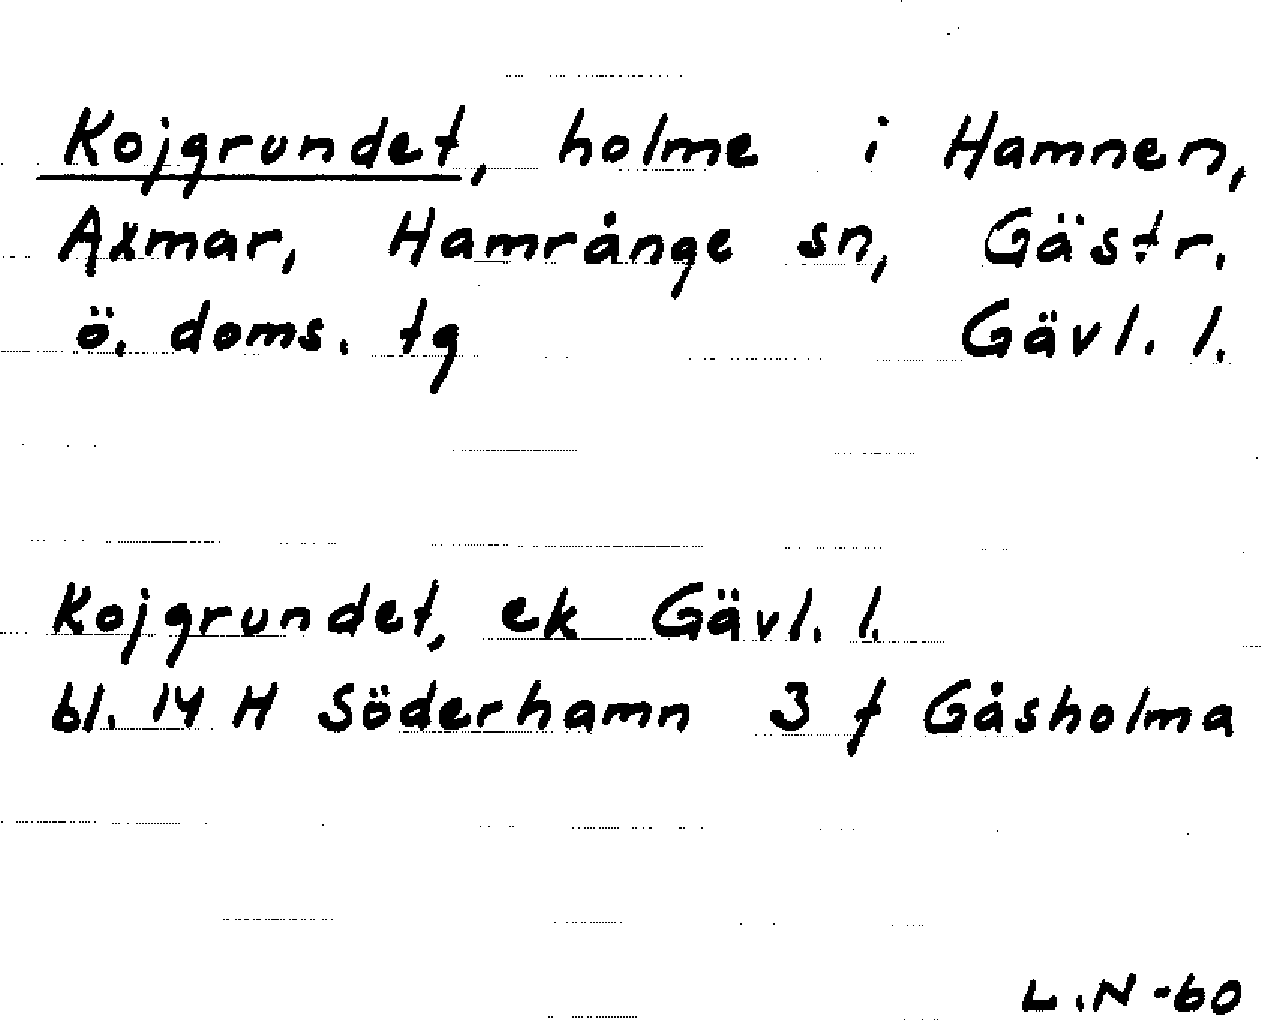 Kojgrundet, holme i Hamnen,
Axmar, Hamrånge sn, Gästr.
ö. doms. tg Gävl. l.
Kojgrundet, ek Gävl. l.
bl. 14 H Söderhamn 3 f Gåsholma
L.N-60